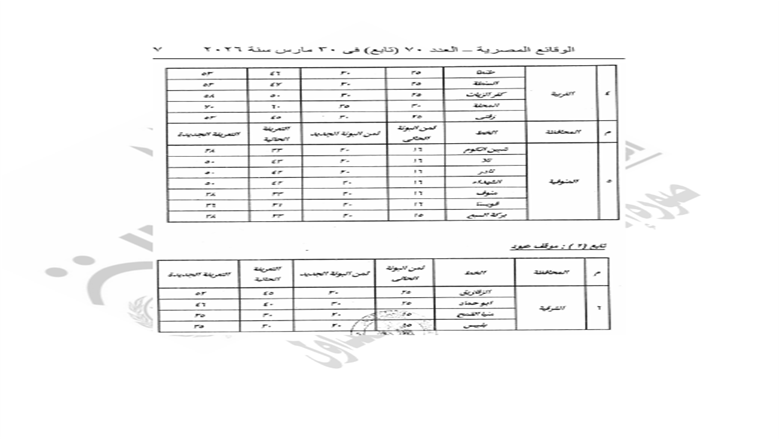 الوقائع المصرية – العدد ٧٠ (تابع) فى ٣٠ مارس سنة ٢٠٢٦ ٧
٤ الغربية طنطا ٢٥ ٣٠ ٤٦ ٥٣
السنطة ٢٥ ٣٠ ٤٧ ٥٣
كفر الزيات ٢٥ ٣٠ ٥٠ ٥٨
المحلة ٣٠ ٣٥ ٦٠ ٧٠
زفتى ٢٥ ٣٠ ٤٥ ٥٣
م المحافظة الخط ثمن البونة الحالى ثمن البونة الجديد التعريفة الحالية التعريفة الجديدة
٥ المنوفية شبين الكوم ١٦ ٢٠ ٣٣ ٣٨
تلا ١٦ ٢٠ ٤٣ ٥٠
١٦ ٢٠ ٤٣ ٥٠
الشهداء ١٦ ٢٠ ٤٣ ٥٠
منوف ١٦ ٢٠ ٣٣ ٣٨
قويسنا ١٦ ٢٠ ٣١ ٣٦
بركة السبع ١٥ ٢٠ ٣٣ ٣٨
تابع (٢) : موقف عبود
م المحافظة الخط ثمن البونة الحالى ثمن البونة الجديد التعريفة الحالية التعريفة الجديدة
٦ الشرقية الزقازيق ٢٥ ٣٠ ٤٥ ٥٢
ابو حماد ٢٥ ٣٠ ٤٠ ٤٦
منيا القمح ١٥ ٢٠ ٣٠ ٣٥
بلبيس ١٥ ٢٠ ٣٠ ٣٥